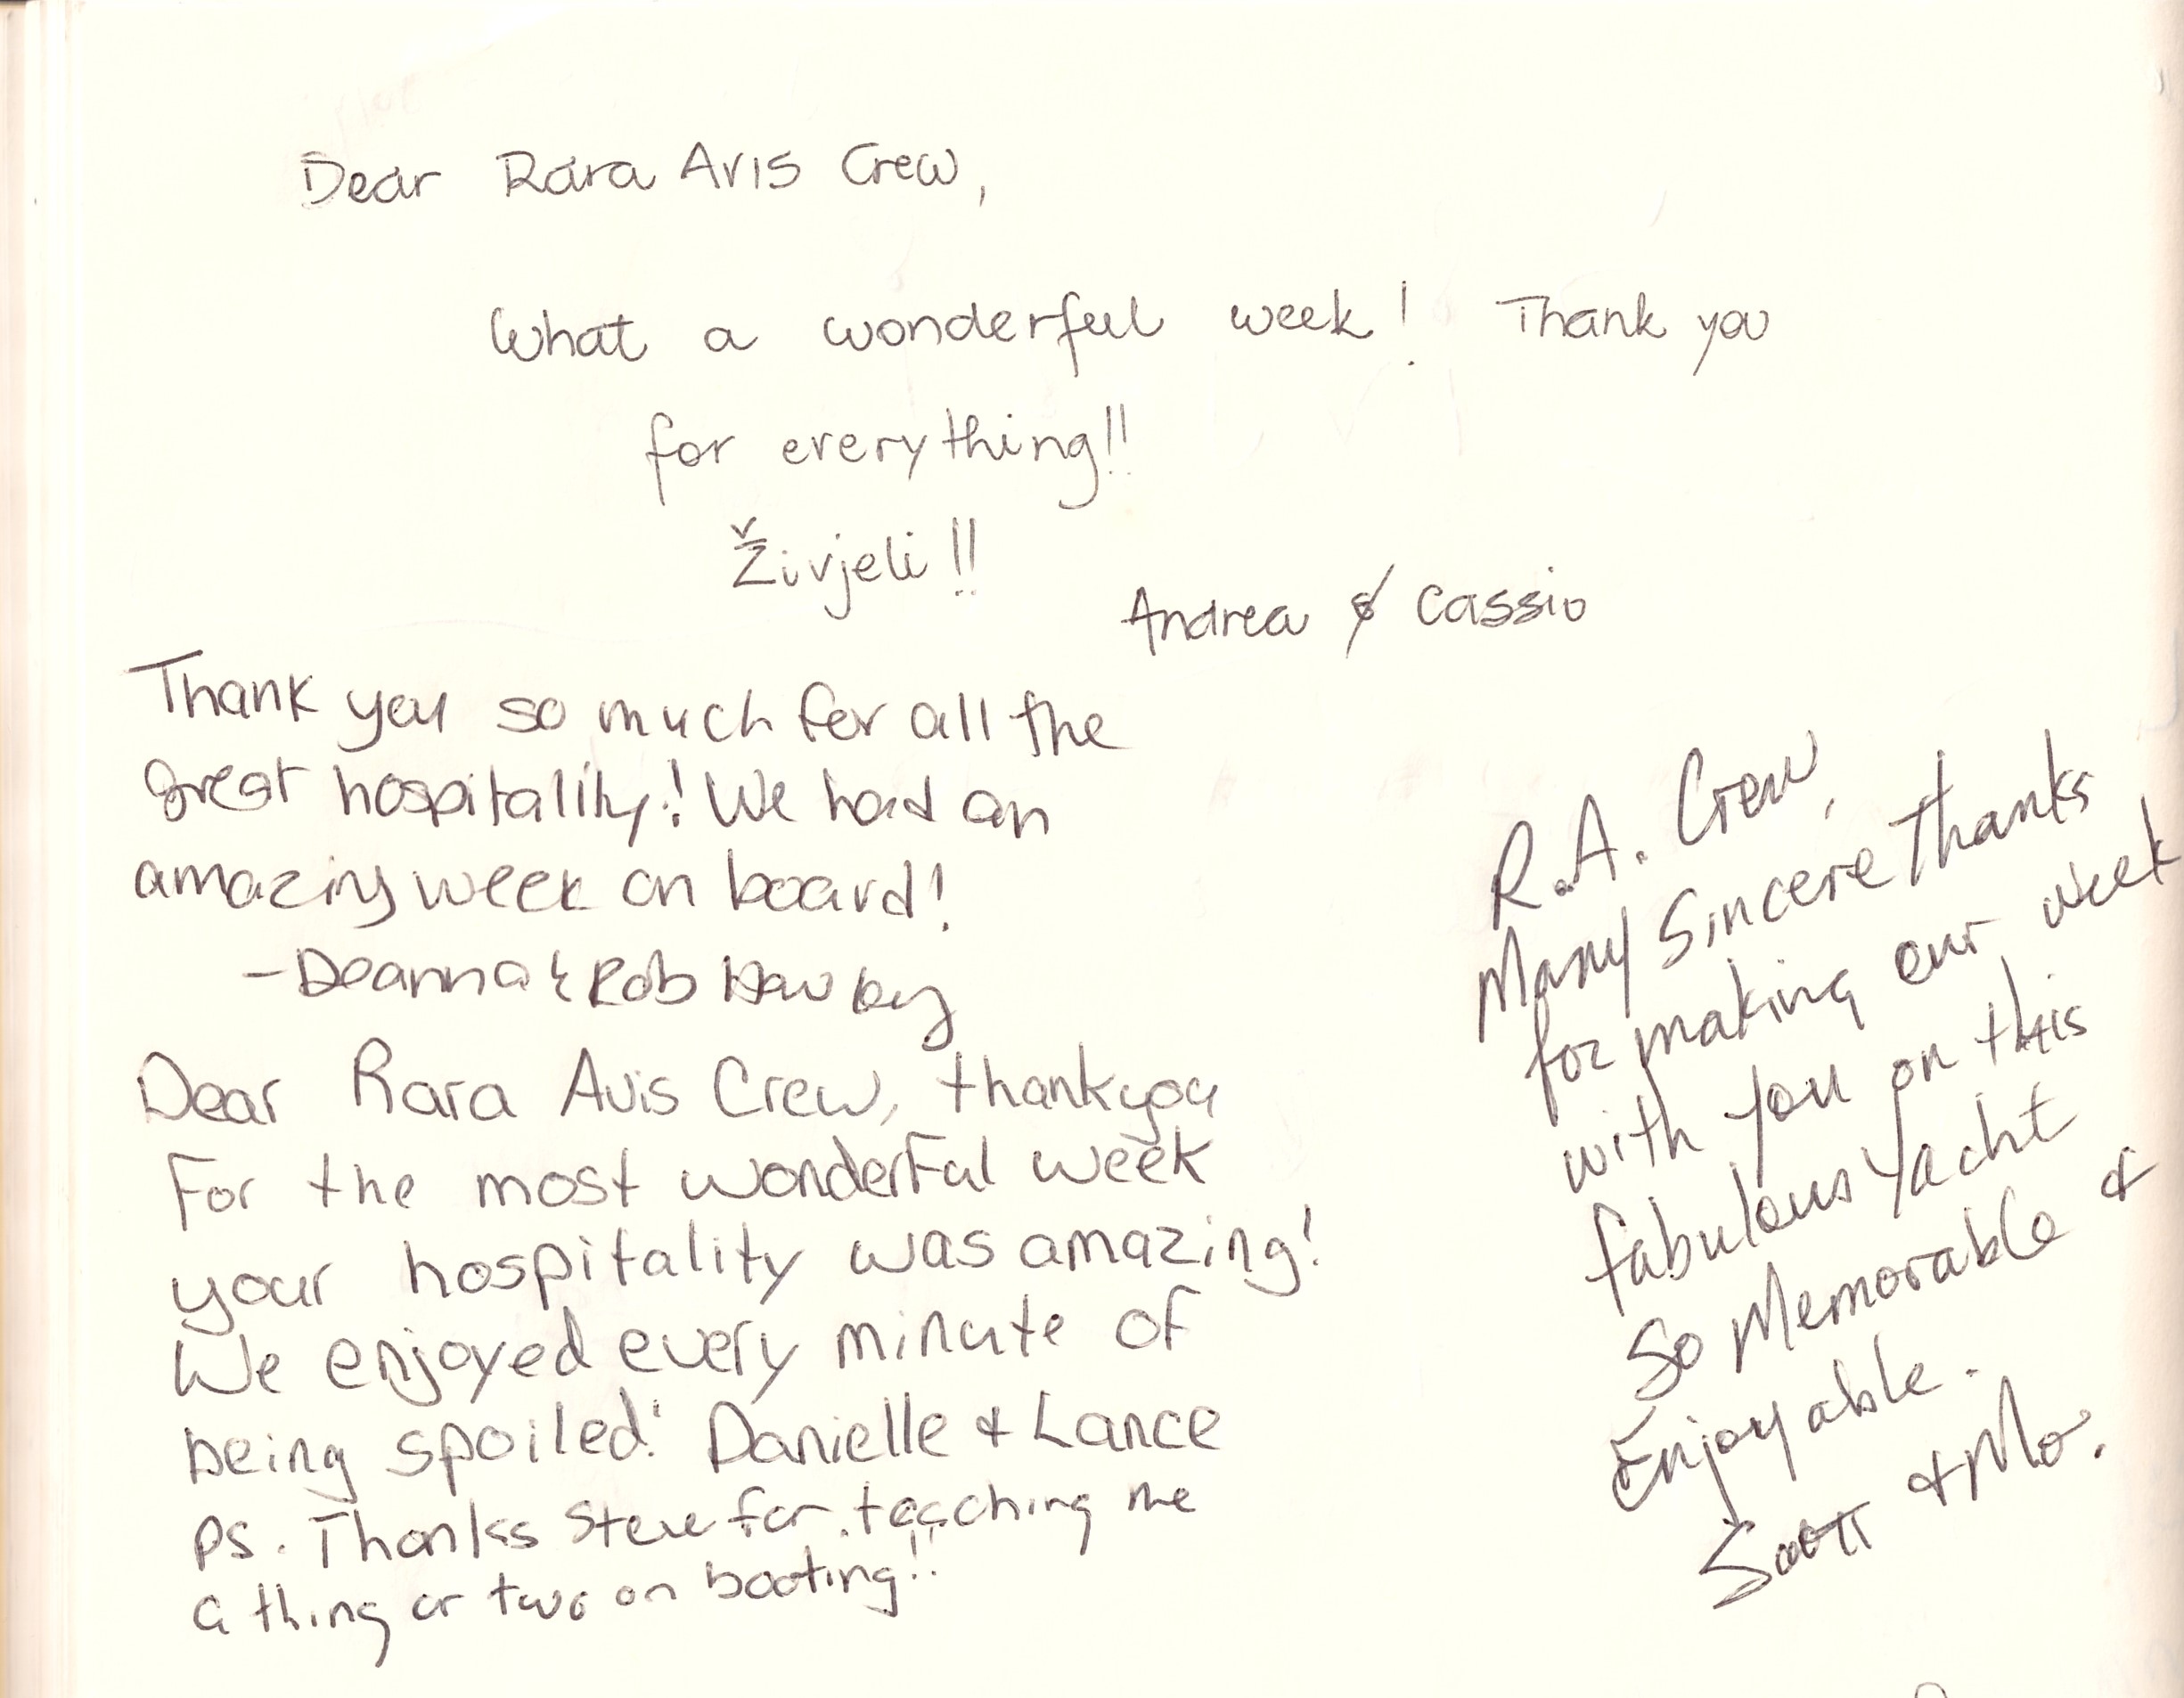 Dear Rara Avis Crew,
What a wonderful week! Thank you
for everything!!
Živjeli!!
Andrea & Cassio
Thank you so much for all the
great hospitality! We had an
amazing week on board!
-Deanna & Rob
Dear Rara Avis Crew, thank you
For the most wonderful week
your hospitality was amazing!
We enjoyed every minute of
being spoiled! Danielle + Lance
PS. Thanks Steve for teaching me
a thing or two on boating!!
R.A. Crew,
Many Sincere Thanks
for making our week
with you on this
fabulous Yacht
So Memorable &
Enjoyable.
Scott + Mo.